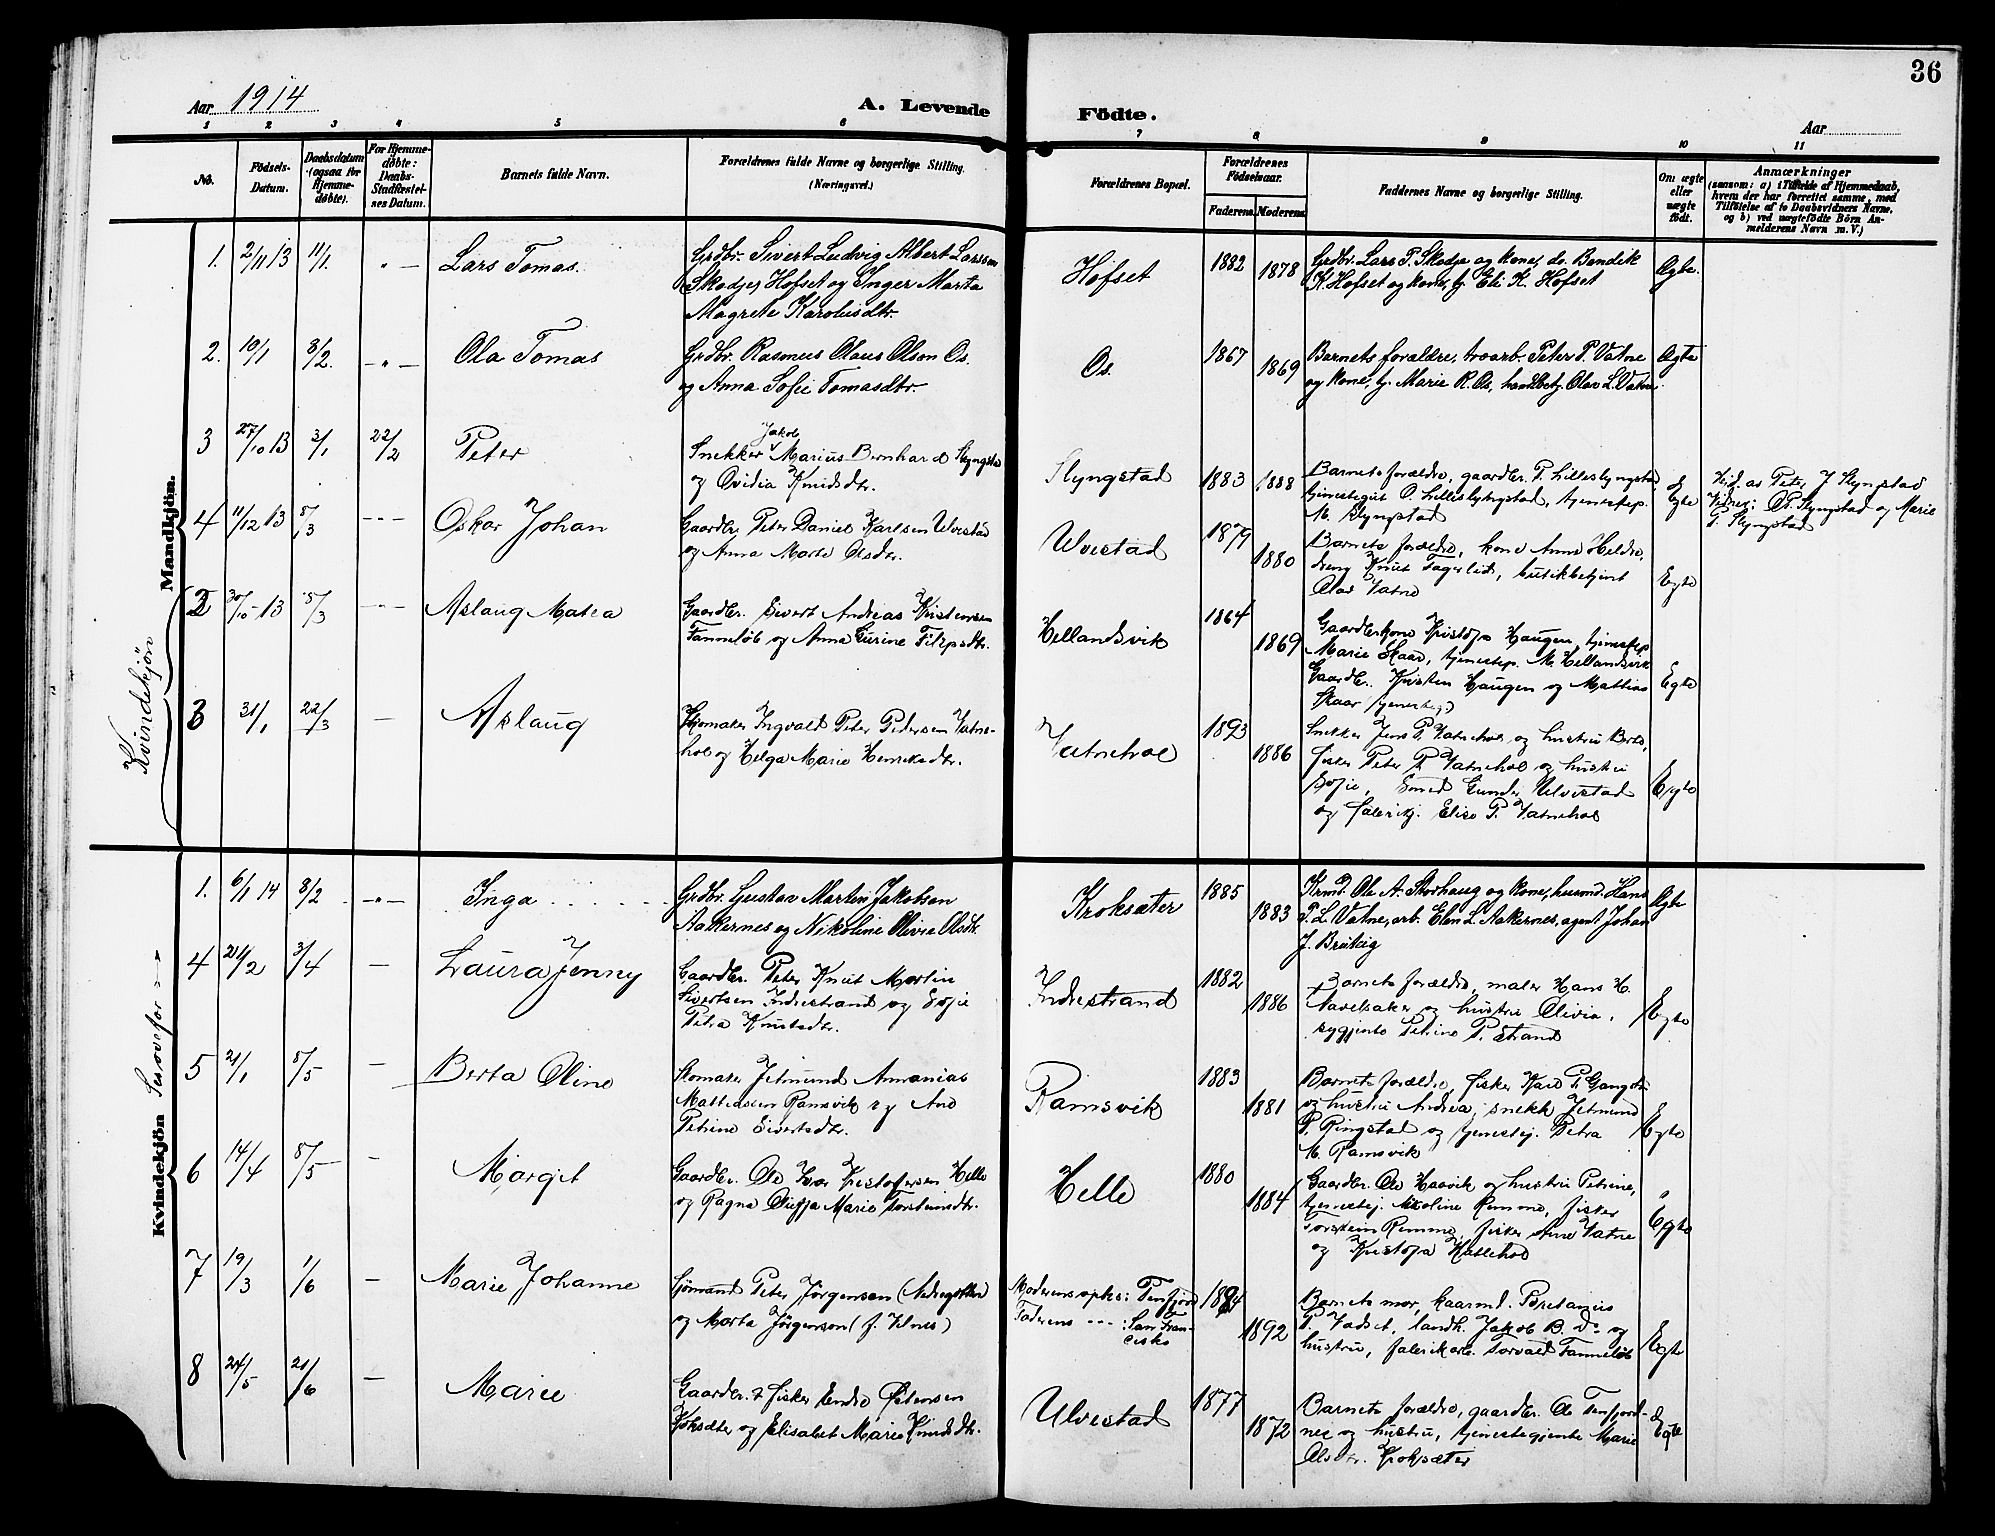 36
Aar 1914
A. Levende Födte.
Aar
1 2 3 4 5 6 7 8 9 10 11
No.
Födsels-Datum.
Daabsdatum (ogsaa for Hjemmedøbte).
For Hjemmedøbte: Daabs-Stadfæstelses Datum.
Barnets fulde Navn.
Forældrenes fulde Navne og borgerlige Stilling. (Næringsvei.)
Forældrenes Bopæl.
Forældrenes Födselsaar.
Faderens Moderens
Faddernes Navne og borgerlige Stilling.
Om ægte eller uægte født.
Anmærkninger
(saasom: a) i Tilfælde af Hjemmedaab,
hvem der har forrettet samme, med
Tilföielse af to Daabsvidners Navne,
og b) ved uægtefödte Börn Anmelderens Navn m. V.)
Mandkjön.
Kvindekjön
1. 2/11 13 11/1. " — Lars Tomas.
Grdbr. Sivert Ludvig Albert Larssen
Skodje, Hofset og Inger Marta
Magrete Karolusdtr.
Hofset 1882 1878
Grdbr. Lars P. Skodje og kone, do. Bendik
K. Hofset og kone, pj. Eli K. Hofset
Ægte.
2. 10/1 8/2. — " — Ola Tomas
Grdbr. Rasmus Olaus Olsen Os.
og Anna Sofie Tomasdtr.
Os. 1867 1869
Barnets forældre, troarb. Peter P. Vatne
og kone, pj. Marie R. Os, handelsbetj. Olav L. Vatne.
Ægte
3 27/10 13 3/1 22/2 Peter
Jakob
Snekker Marius Bernhard Slyngstad
og Ovidia Knudsdtr.
Slyngstad 1883 1888
Barnets forældre, gaardbr. P. Lilleslyngstad,
tjenestegut O. Lilleslyngstad, tjenestep.
M. Slyngstad
Egte
Hjd. av Peter J Slyngstad
Vidner: O.P. Slyngstad og Marie
P. Slyngstad
4 11/12 13 8/3 — " — Oskar Johan
Gaardbr. Peter Daniel Karlsen Ulvestad
og Anna Marte Olsdtr.
Ulvestad 1879 1880
Barnets forældre, kone Anne Heldre,
dreng Knut Fagerlid, butikbetjent
Olav Vatne
Egte
2 30/10 - 13 8/3 — " — Aslaug Matea
Gaardbr. Sivert Andreas Kristensen
Tanneløb og Anna Gurine Filipsdtr.
Hellandsvik 1864 1869
Gaardbr.kone Kristofa Haugen, tjenestep.
Marie Skaar, tjenestep. M. Hellandsvik
Gaardbr. Kristen Haugen og Mattias
Skaar (tjenesteg.)
Egte
3 31/1 22/3 — Aslaug
Skomaker Ingvald Peter Pedersen Vatne-
hol og Helga Marie Henriksdtr.
Vatnehol 1893 1886
Snekker Jens P. Vatnehol og hustru Berte,
fisker Peter P. Vatnehol og hustru
Sofie, Smed Gunder Ulvestad
og fabrikpj. Elise P. Vatnehol
Egte
Kvindekjön Se ovefor
1. 6/1 14 8/2 — " — Inga
Grdbr. Gustav Martin Jakobsen
Aakernes og Nikoline Olivie Olsdtr.
Kroksæter 1885 1883
Krmd. Ole A. Storhaug og kone, husmd. Hans
P. L. Vatne, arb. Elen L. Aakernes, agent Johan
J. Breivig
Ægte
4 21/2 3/4 — Laura Jenny
Gaardbr. Peter Knut Martin
Sivertsen Indrestrand og Sofie
Petra Knutsdtr.
Indrestrand 1882 1886
Barnets forældre, maler Hans H.
Navelsaker og hustru Olivia,
sygjente Petrine P. Strand
Egte
5 21/1 8/5 — Berta Oline
Skomaker Jetmund Ananias
Mattiassen Ramsvik og Ane
Petrine Sivertsdtr.
Ramsvik 1883 1881
Barnets forældre, fisker Karl P. Gangstø
og hustru Andrea, snekk. Jetmund
P. Ringstad og tjenestepj. Petra
M. Ramsvik
Egte
6 14/4 8/5 — Margit
Gaardbr. Ole Ivar Kristofersen Helle
og Ragna Olufpa Marie Torsteinsdtr.
Helle 1880 1884
Gaardbr. Ole Haavik og hustru Petrine,
tjenestepj. Nikoline Remme, fisker
Torstein Remme, fisker Arne Vatne
og Kristofa Hallehol
Egte
7 19/3 1/6 — Marie Johanne
Sjømand Peter Jørgensen (Nedregotten)
og Marta Jørgensen (f. Ulnes)
Moderens opho.: Tenfjord
Faderens — " — : San Fran-
cisko
1884 1892
Barnets mor, kaarmd. Baretanius
P. Vadset, landh. Jakob B. Do og
hustru, fabrikarb. Torvald Tanneløb
Egte
8 24/5 21/6 — Marie
Gaardbr. & fisker Endre Østensen
Kroksæter og Elisabet Marie Knudsdtr.
Ulvestad 1877 1872
Barnets forældre, gaardbr. Ole Tenfjord-
nes og hustru, tjenestegjente Marie
Olsdtr. Kroksæter
Egte